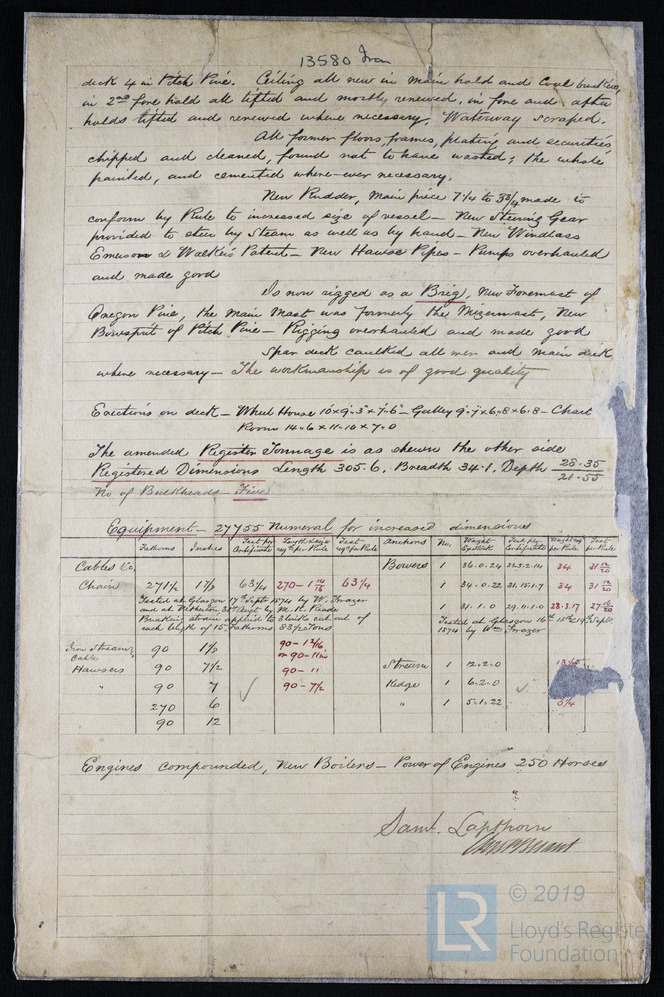 13580 Iron
deck 4 in Pitch Pine. Ceiling all new in main hold and Coal bunkers,
in 2nd fore hold all lifted and mostly renewed, in fore and after
holds lifted and renewed where necessary. Waterway scraped.
All former floors, frames, plating and securities
chipped and cleaned, found not to have wasted; the whole
painted, and cemented where-ever necessary.
New Rudder, main piece 7 1/4 to 3 3/4 made to
conform by Rule to increased size of vessel — New Steering Gear
provided to steer by Steam as well as by hand — New Windlass
Emerson & Walker's Patent — New Hawse Pipes — Pumps overhauled
and made good
Is now rigged as a Brig, New Foremast of
Oregon Pine, the Main Mast was formerly the Mizenmast, New
Bowsprit of Pitch Pine — Rigging overhauled and made good
Spar deck caulked all over and main deck
where necessary — The workmanship is of good quality
Erections on deck — Wheel House 10 × 9.3 × 7.6 — Galley 9.7 × 6.8 × 6.8 — Chart
Room 14.6 × 11.10 × 7.0
The amended Register Tonnage is as shewn the other side
Registered Dimensions Length 305.6. Breadth 34.1. Depth 28.35
21.55
No of Bulkheads Five
Equipment — 27755 Numeral for increased dimensions
Fathoms Inches Test per Certificate Length & size reqd per Rule Test reqd per Rule Anchors No. Weight Ex Stock Test per Certificate Weight req per Rule Test per Rule
Cables &c. Bowers 1 36.0.24 34 31 12/20
Chain 271 1/2 1 7/8 63 1/4 270 - 1 14/16 63 1/4 1 34.0.22 31.15.1.7 34 31 12/20
Tested at Glasgow 17th Sept 1874 by W. Frazer 1 31.1.0 29.11.1.0 28.3.17 27
and at Netherton, by M. R.
Breaking strain applied to 3 links cut out of
each length of 15 Fathoms 88 1/2 Tons
Tested at Glasgow 16th 18th & 19th Sept
1874 by Wm Frazer
Iron Stream Cable 90 1 90 -
or 90 - 11 in
Hawsers 90 7 1/2 90 - 11 Stream 1 12.2.0
" 90 7 90 - 7 1/2 Kedge 1 6.2.0
270 6 " 1 5.1.22
90 12
Engines compounded, New Boilers — Power of Engines 250 Horses
Saml. Lapthorn
LR
© 2019
Lloyd's Registe
Foundation